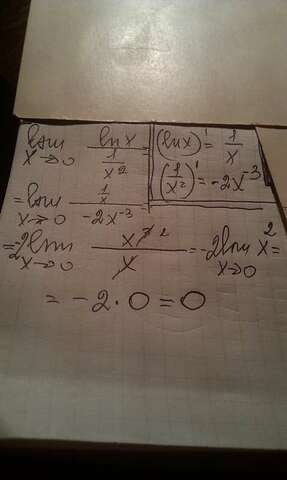 lim x→0 ln x / (1/x²) =
(ln x)' = 1/x
(1/x²)' = -2x⁻³
= lim x→0 (1/x) / (-2x⁻³)
= -2 lim x→0 x³ ² / x = -2 lim x→0 x² =
= -2 · 0 = 0